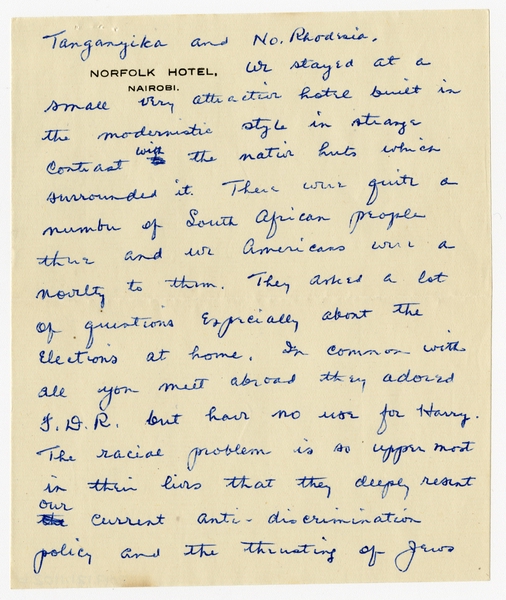 Tanganyika and No. Rhodesia.
NORFOLK HOTEL,
NAIROBI.
We stayed at a
small very attractive hotel built in
the modernistic style in strange
contrast with the native huts which
surrounded it. There were quite a
number of South African people
there and we Americans were a
novelty to them. They asked a lot
of questions especially about the
Elections at home. In common with
all you meet abroad they adored
F.D.R. but have no use for Harry.
The racial problem is so uppermost
in their lives that they deeply resent
our current anti-discrimination
policy and the thrusting of Jews